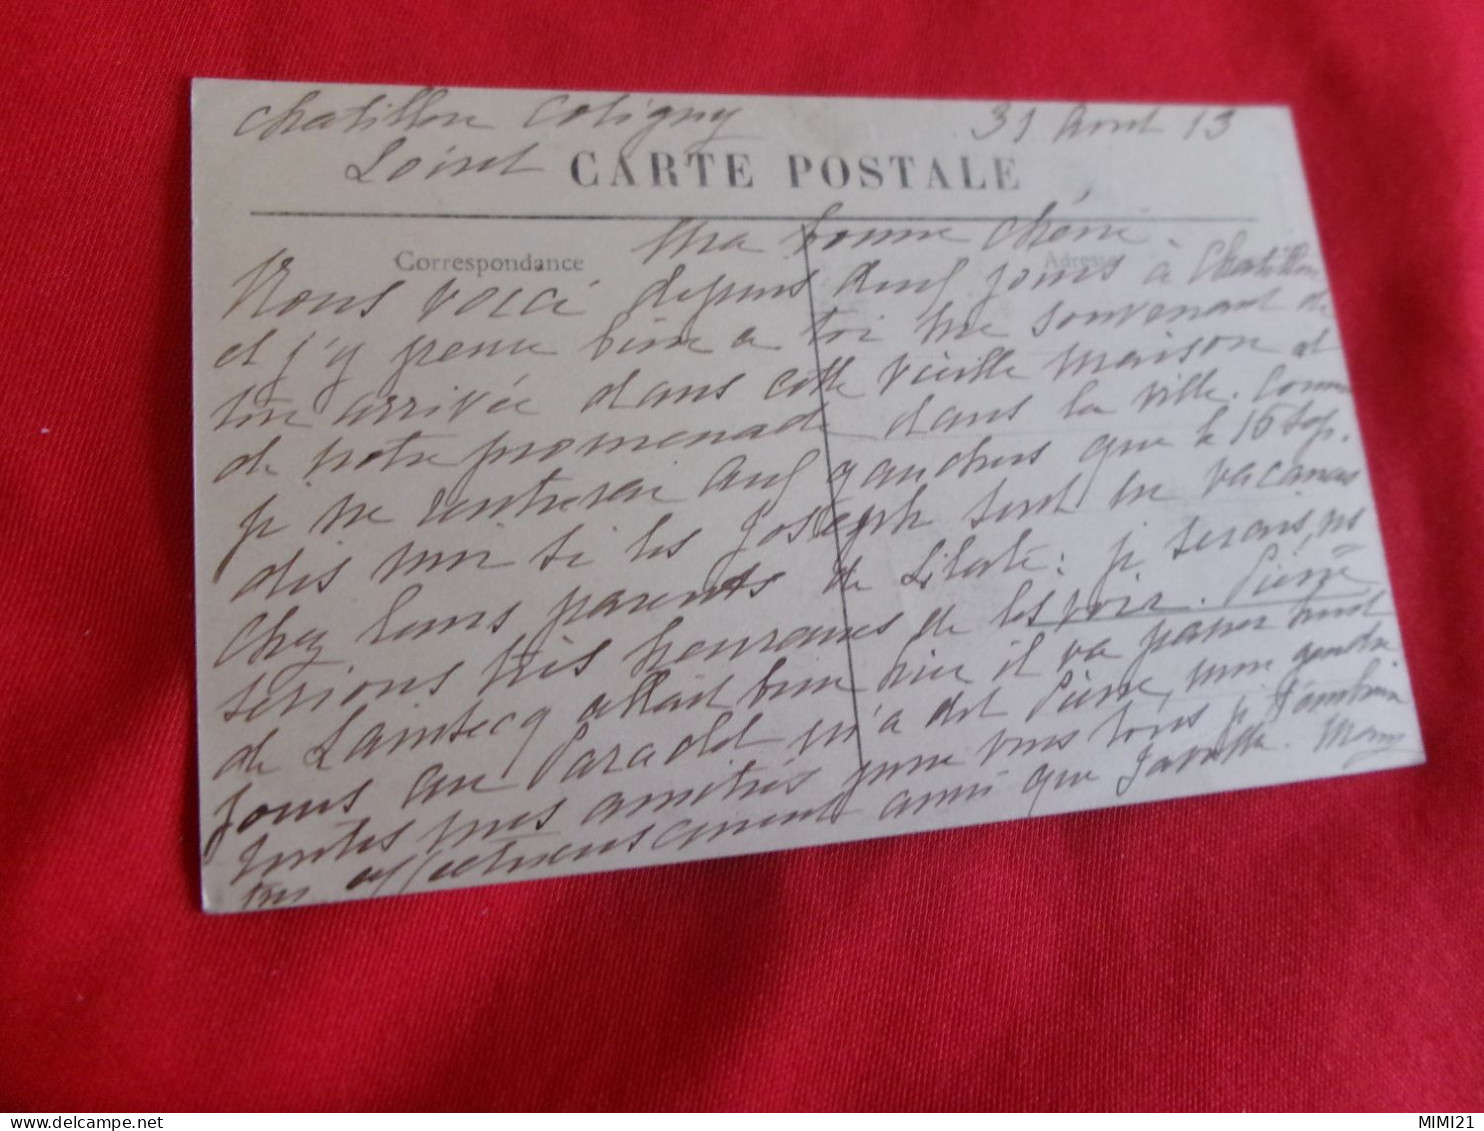 Chatillon Coligny 31 Aout 13
Loiret CARTE POSTALE
Correspondance Adresse
Ma bonne Chérie
Nous voici depuis deux jours à Chatillon
et j'y pense bien a toi me souvenant de
ton arrivée dans cette vieille maison et
de notre promenade dans la ville. Comme
je ne rentrerai aux que le 15 Sep.
dis moi si les Joseph sont en vacances
chez leurs parents de : je serais, ns
serions très heureuses de les voir. Pierre
de Lainsecq allait bien hier il va passer huit
jours au m'a dit Pierre, mon gendre
toutes mes amitiés pour vous tous je t'embrasse
très affectueusement ainsi que
MIMI21